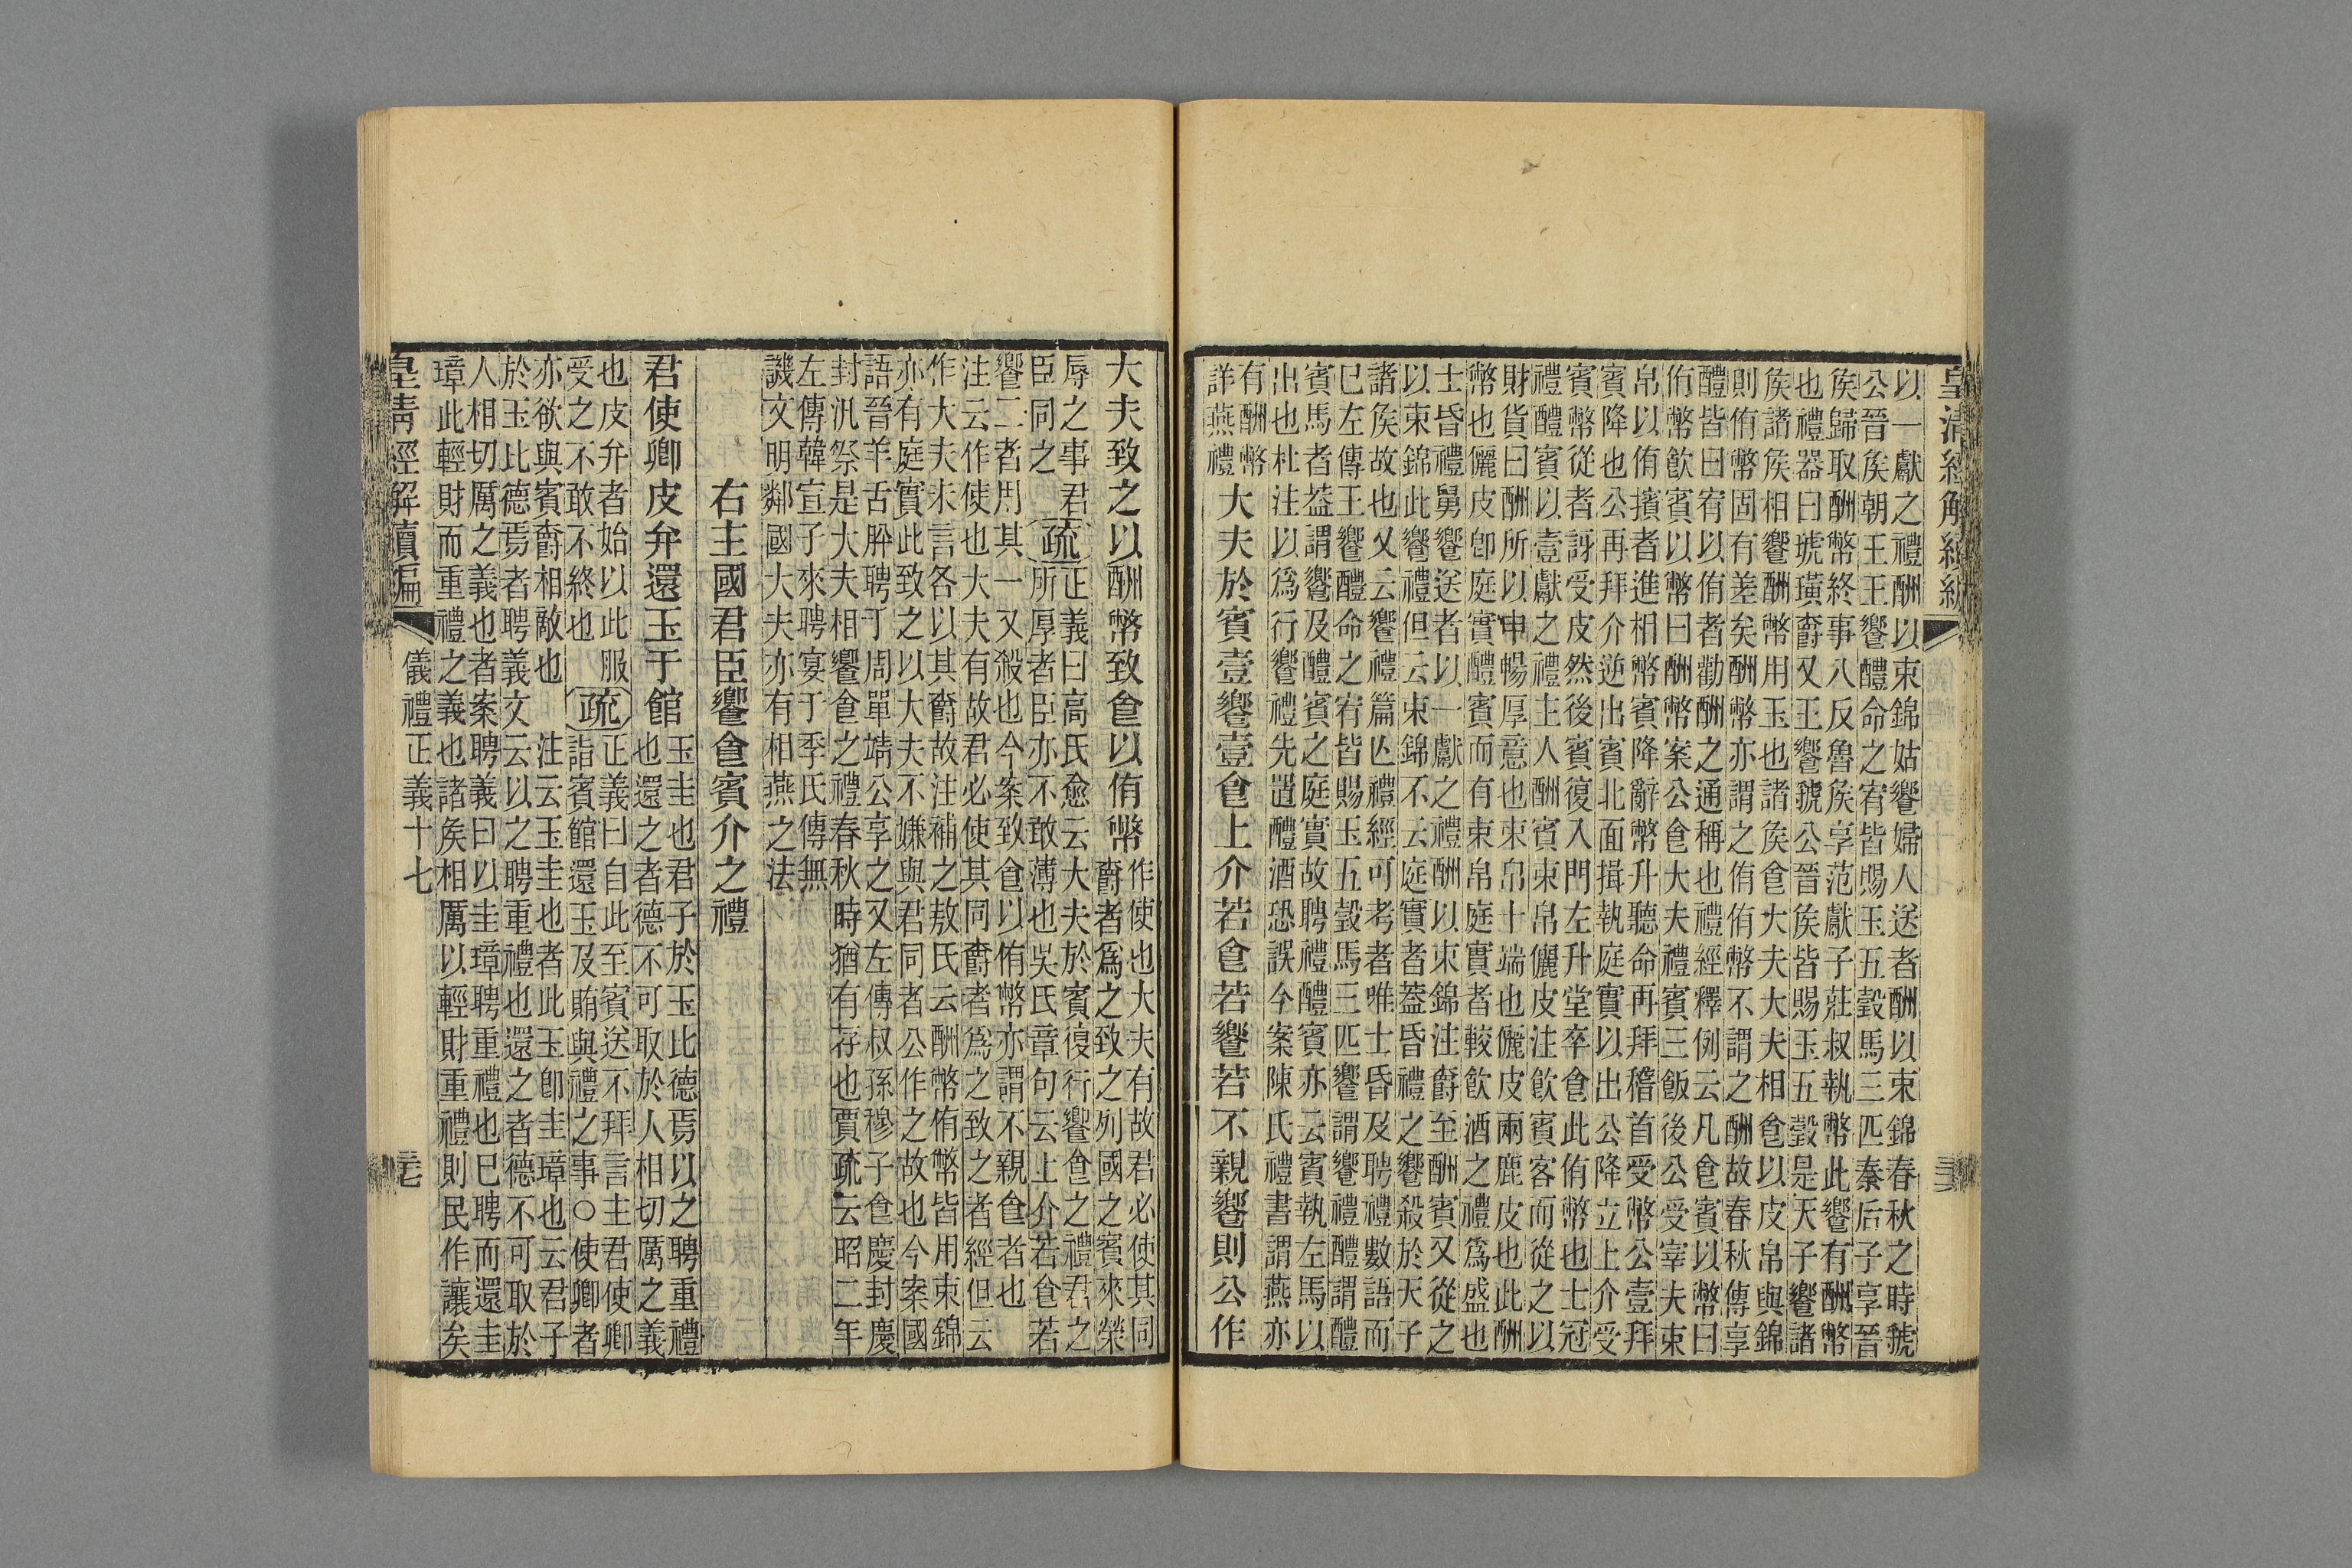 皇清經解續編
以一獻之禮酬以束錦姑饗婦人送者酬以束錦春秋之時虢
公晉矦朝王王饗醴命之宥皆賜玉五瑴馬三匹秦后子享晉
矦歸取酬幣終事八反魯矦享范獻子莊叔執幣此饗有酬幣
也禮器曰琥璜爵又王饗虢公晉矦皆賜玉五瑴是天子饗諸
矦諸矦相饗酬幣用玉也諸矦食大夫大夫相食以皮帛與錦
則侑幣固有差矣酬幣亦謂之侑侑幣不謂之酬故春秋傳享
醴皆曰宥以侑者勸酬之通稱也禮經釋例云凡食賓以幣曰
侑幣飲賓以幣曰酬幣案公食大夫禮賓三飯後公受宰夫束
帛以侑擯者進相幣賓降辭幣升聽命再拜稽首受幣公壹拜
賓降也公再拜介逆出賓北面揖執庭實以出公降立上介受
賓幣從者訝受皮然後賓復入門左升堂卒食此侑幣也士冠
禮醴賓以壹獻之禮主人酬賓束帛儷皮注飲賓客而從之以
財貨曰酬所以申暢厚意也束帛十端也儷皮兩鹿皮也此酬
幣也儷皮卽庭實醴賓而有束帛庭實者較飲酒之禮爲盛也
士昏禮舅饗送者以一獻之禮酬以束錦注爵至酬賓又從之
以束錦此饗禮但云束錦不云庭實者葢昏禮之饗殺於天子
諸矦故也又云饗禮篇亾禮經可考者唯士昏及聘禮數語而
巳左傳王饗醴命之宥皆賜玉五瑴馬三匹饗謂饗禮醴謂醴
賓馬者葢謂饗及醴賓之庭實故聘禮醴賓亦云賓執左馬以
出也杜注以爲行饗禮先置醴酒恐誤今案陳氏禮書謂燕亦
有酬幣
詳燕禮
大夫於賓壹饗壹食上介若食若饗若不親饗則公作
大夫致之以酬幣致食以侑幣
作使也大夫有故君必使其同
爵者爲之致之列國之賓來榮
辱之事君
臣同之
疏
正義曰高氏愈云大夫於賓復行饗食之禮君之
所厚者臣亦不敢薄也吳氏章句云上介若食若
饗二者用其一又殺也今案致食以侑幣亦謂不親食者也
注云作使也大夫有故君必使其同爵者爲之致之者經但云
作大夫未言各以其爵故注補之敖氏云酬幣侑幣皆用束錦
亦有庭實此致之以大夫不嫌與君同者公作之故也今案國
語晉羊舌肸聘于周單靖公享之又左傳叔孫穆子食慶封慶
封汜祭是大夫相饗食之禮春秋時猶有存也賈疏云昭二年
左傳韓宣子來聘宴于季氏傳無
譏文明鄰國大夫亦有相燕之法
右主國君臣饗食賓介之禮
君使卿皮弁還玉于館
玉圭也君子於玉比德焉以之聘重禮
也還之者德不可取於人相切厲之義
也皮弁者始以此服
受之不敢不終也
疏
正義曰自此至賓送不拜言主君使卿
詣賓館還玉及賄與禮之事○使卿者
亦欲與賓爵相敵也　注云玉圭也者此玉卽圭璋也云君子
於玉比德焉者聘義文云以之聘重禮也還之者德不可取於
人相切厲之義也者案聘義曰以圭璋聘重禮也巳聘而還圭
璋此輕財而重禮之義也諸矦相厲以輕財重禮則民作讓矣
皇清經解續編
儀禮正義十七